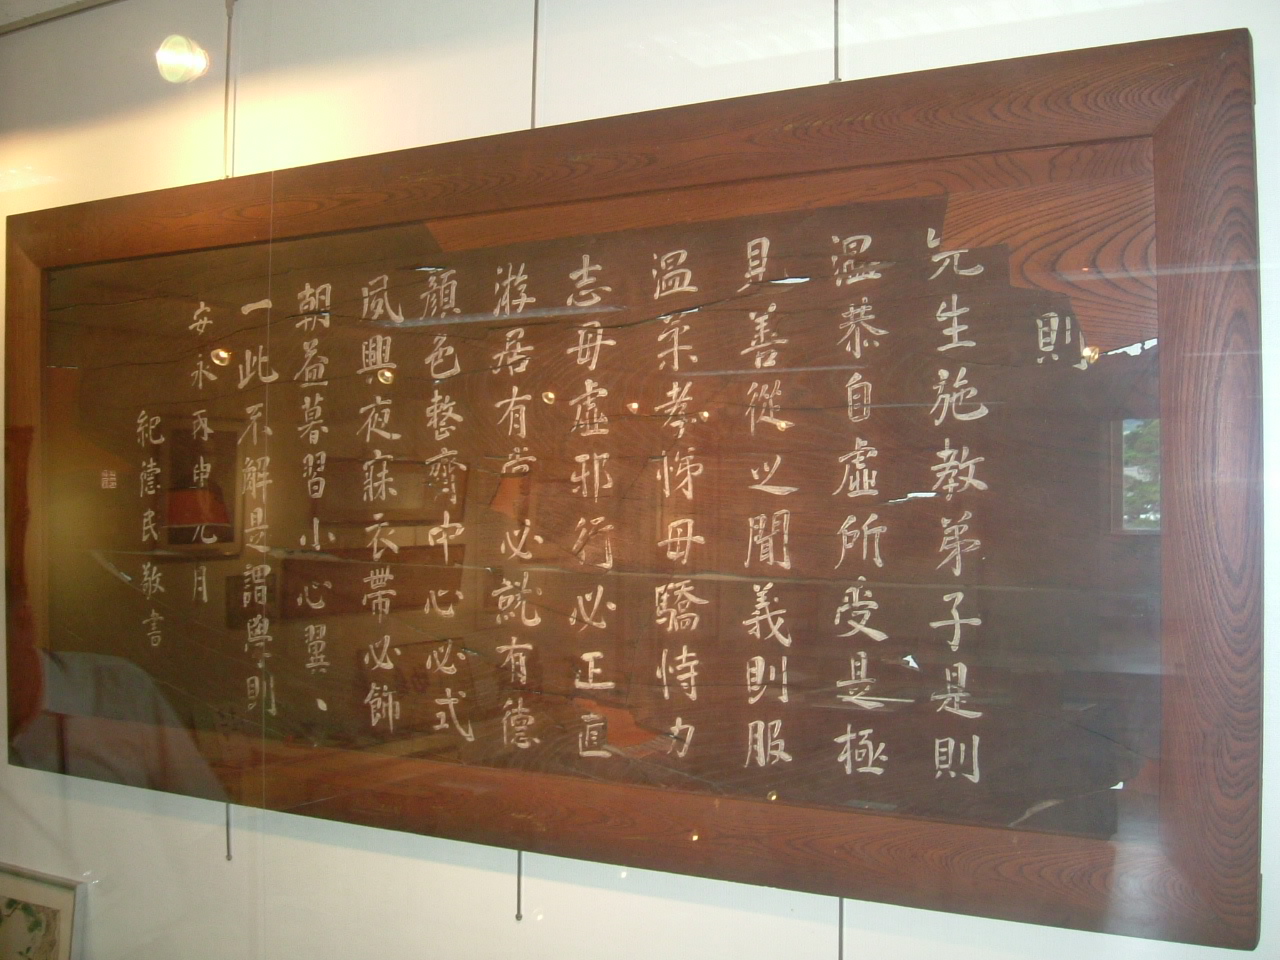 則
先生施教弟子是則
溫恭自虛所受是極
見善從之聞義則服
溫柔孝悌毋驕恃力
志毋虛邪行必正直
游居有常必就有德
顏色整齊中心必式
夙興夜寐衣帶必飾
朝益暮習小心翼〻
一此不解是謂學則
安永丙申九月
紀德民敬書